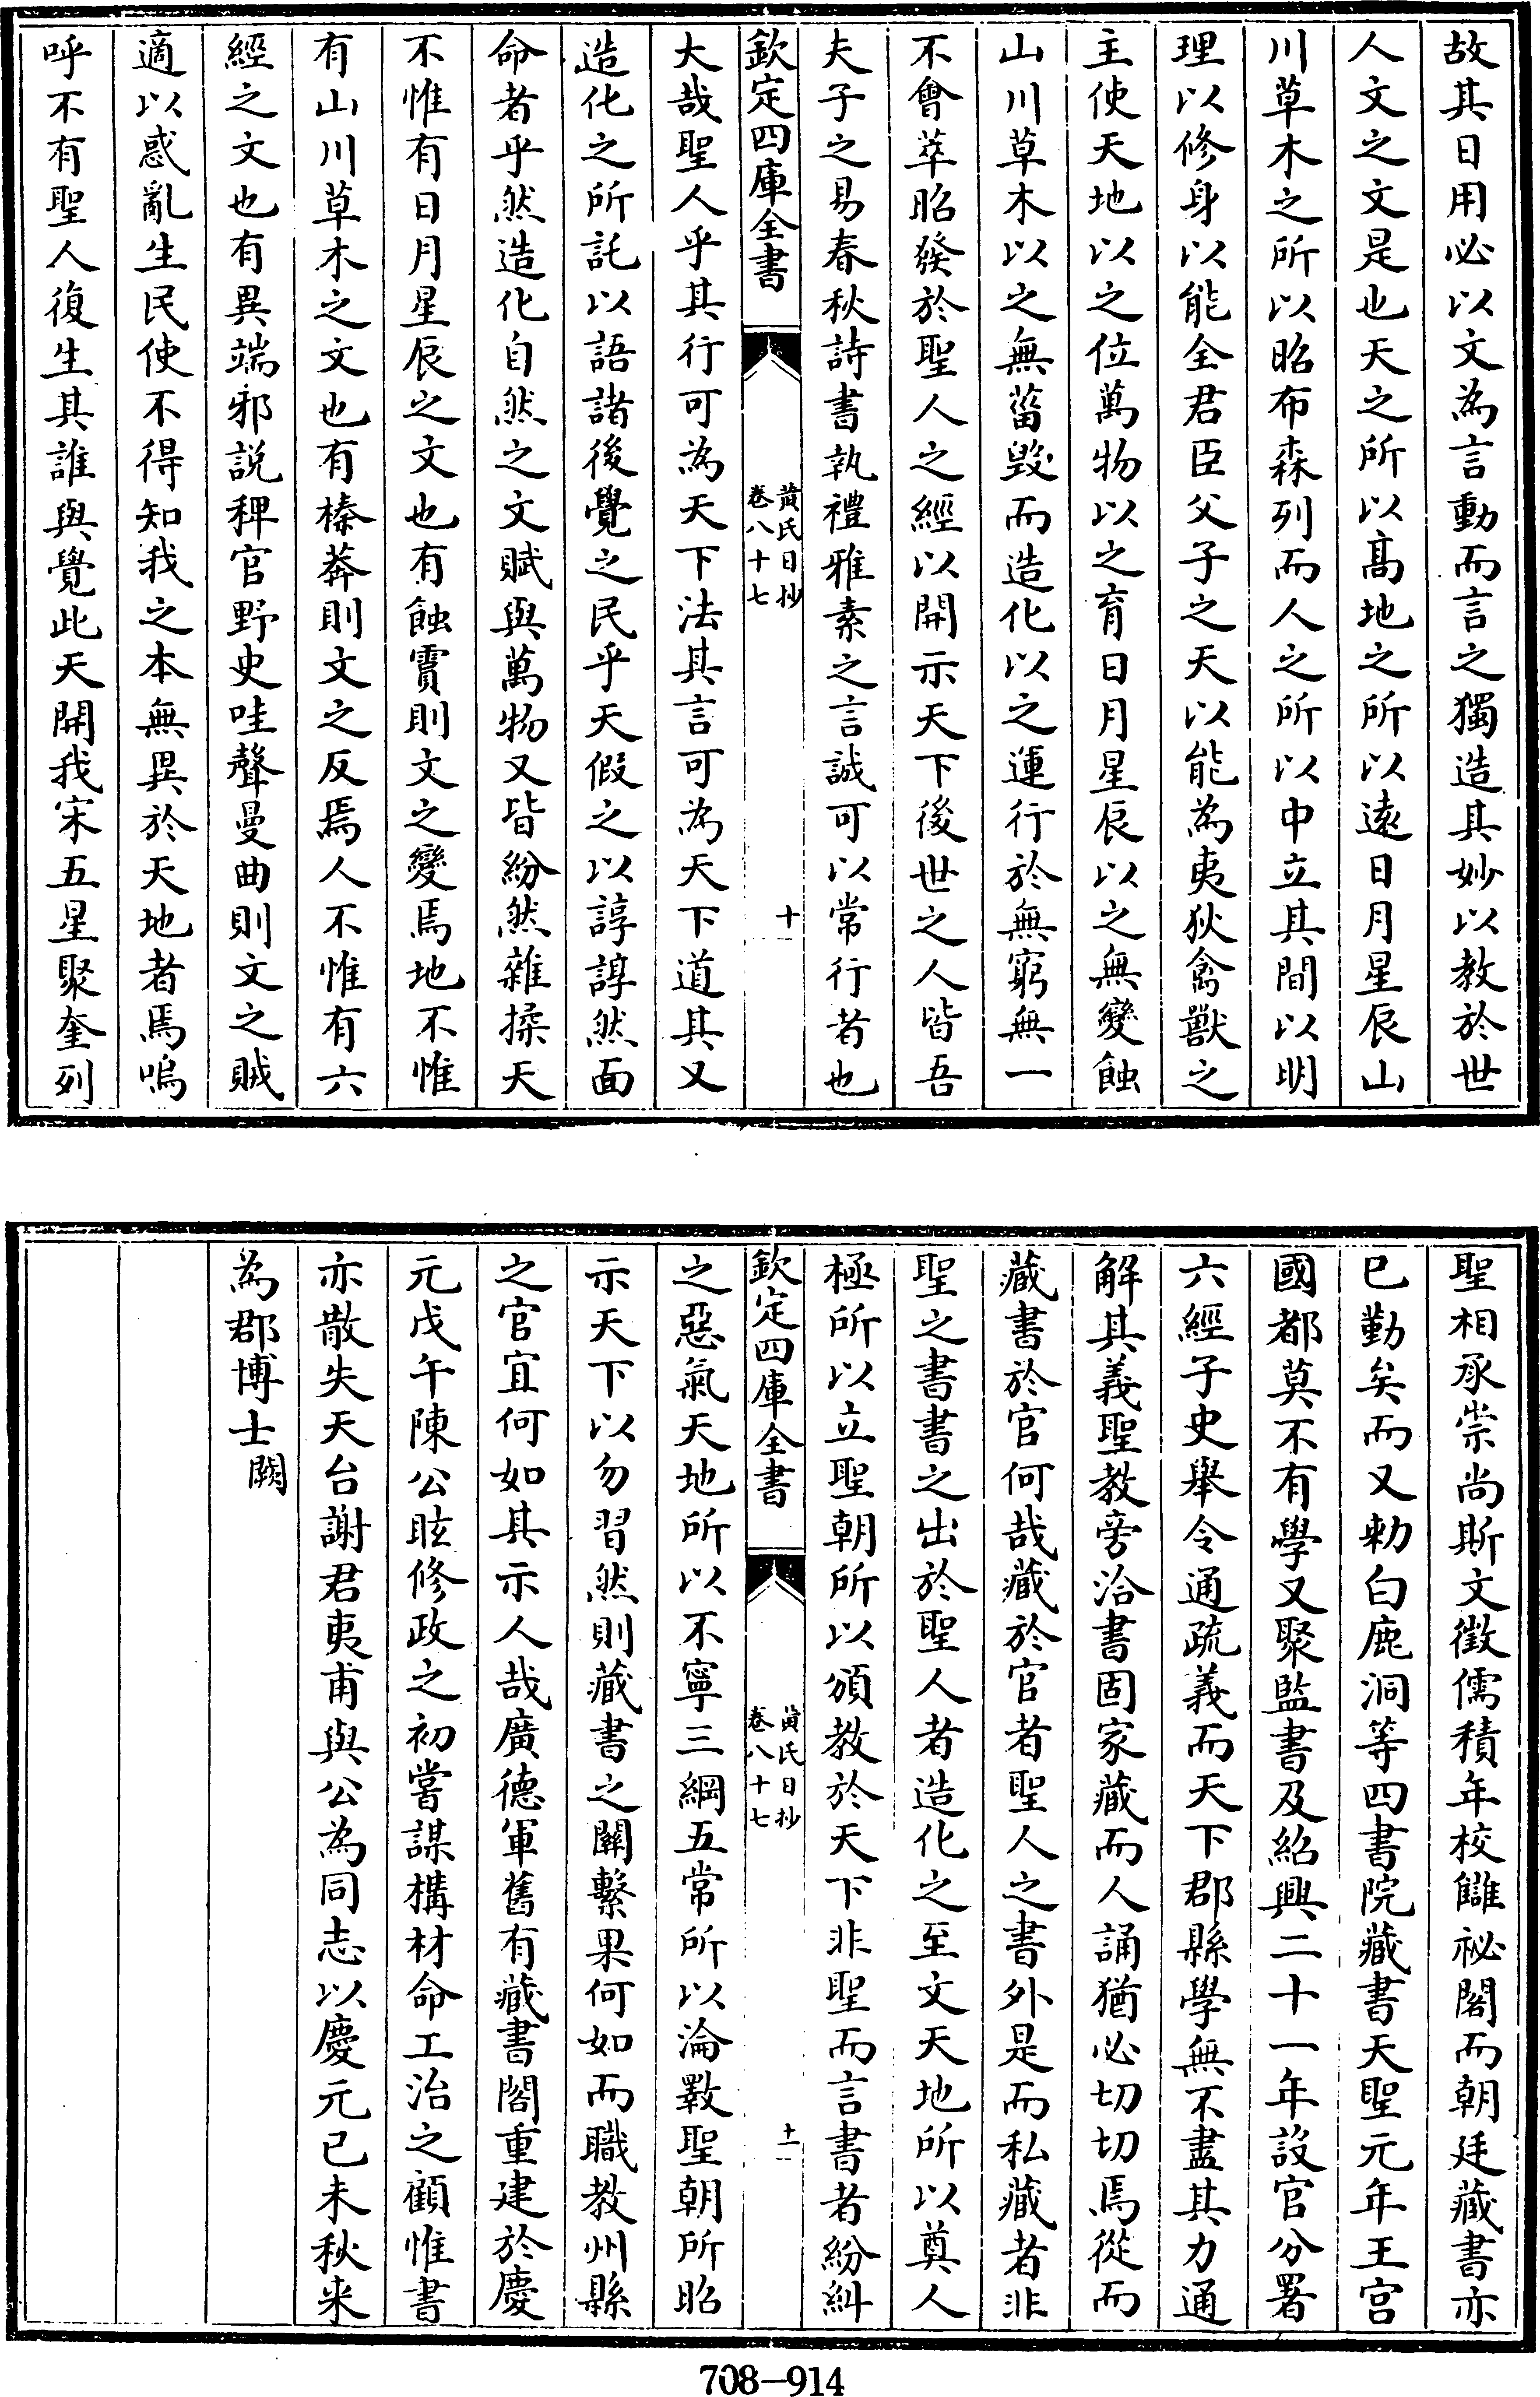 故其日用必以文為言動而言之獨造其妙以教於世
人文之文是也天之所以髙地之所以逺日月星辰山
川草木之所以昭布森列而人之所以中立其間以明
理以修身以能全君臣父子之天以能為夷狄禽獸之
主使天地以之位萬物以之育日月星辰以之無變蝕
山川草木以之無菑毀而造化以之運行於無窮無一
不會萃昭發於聖人之經以開示天下後世之人皆吾
夫子之易春秋詩書執禮雅素之言誠可以常行者也
欽定四庫全書
黄氏日抄
卷八十七
十
大哉聖人乎其行可為天下法其言可為天下道其又
造化之所託以語諸後覺之民乎天假之以諄諄然面
命者乎然造化自然之文賦與萬物又皆紛然雜揉天
不惟有日月星辰之文也有蝕霣則文之變焉地不惟
有山川草木之文也有榛莽則文之反焉人不惟有六
經之文也有異端邪説稗官野史哇聲曼曲則文之賊
適以惑亂生民使不得知我之本無異於天地者焉嗚
呼不有聖人復生其誰與覺此天開我宋五星聚奎列
聖相承崇尚斯文徵儒積年校讎祕閣而朝廷藏書亦
已勤矣而又勅白鹿洞等四書院藏書天聖元年王宫
國都莫不有學又聚監書及紹興二十一年設官分署
六經子史舉令通疏義而天下郡縣學無不盡其力通
解其義聖教旁洽書固家藏而人誦猶必切切焉從而
藏書於官何哉藏於官者聖人之書外是而私藏者非
聖之書書之出於聖人者造化之至文天地所以奠人
極所以立聖朝所以頒教於天下非聖而言書者紛糾
欽定四庫全書
黄氏日抄
卷八十七
十一
之惡氣天地所以不寧三綱五常所以淪斁聖朝所昭
示天下以勿習然則藏書之關繫果何如而職教州縣
之官宜何如其示人哉廣德軍舊有藏書閣重建於慶
元戊午陳公昡修政之初嘗謀構材命工治之顧惟書
亦散失天台謝君夷甫與公為同志以慶元已未秋来
為郡博士闕
708—914